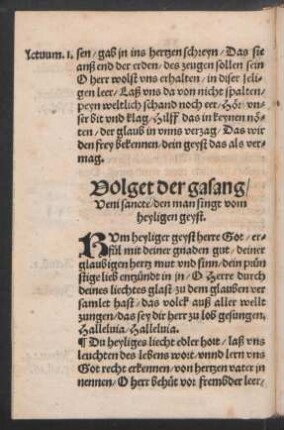 Actuum. 1. sen / gab jn ins hertzen schreyn / Das sie
anß end der erden / des zeugen sollen sein
O herr wolst vns erhalten / in diser seli-
gen leer / Laß vns da von nicht spalten /
peyn weltlich schand noch eer / Hör vn-
ser bit vnd klag / Hilff das in keynen nö-
ten / der glaub in vnns verzag / Das wir
den frey bekennen / dein geyst das als ver-
mag.
Volget der gasang /
Veni sancte / den man singt vom
heyligen geyst.
KVm heyliger geyst herre Got / er-
fül mit deiner gnaden gut / deiner
glaubigen hertz mut vnd sinn / dein prün
stige lieb entzündt in jn / O Herre durch
deines liechtes glast / zu dem glauben ver
samlet hast / das volck auß aller wellt
zungen / das sey dir herr zu lob gesungen,
Halleluia / Halleluia.
¶ Du heyliges liecht edler hort / laß vns
leuchten des lebens wort / vnnd lern vns
Got recht erkennen / von hertzen vater jn
nennen / O herr behüt vor frembder leer /